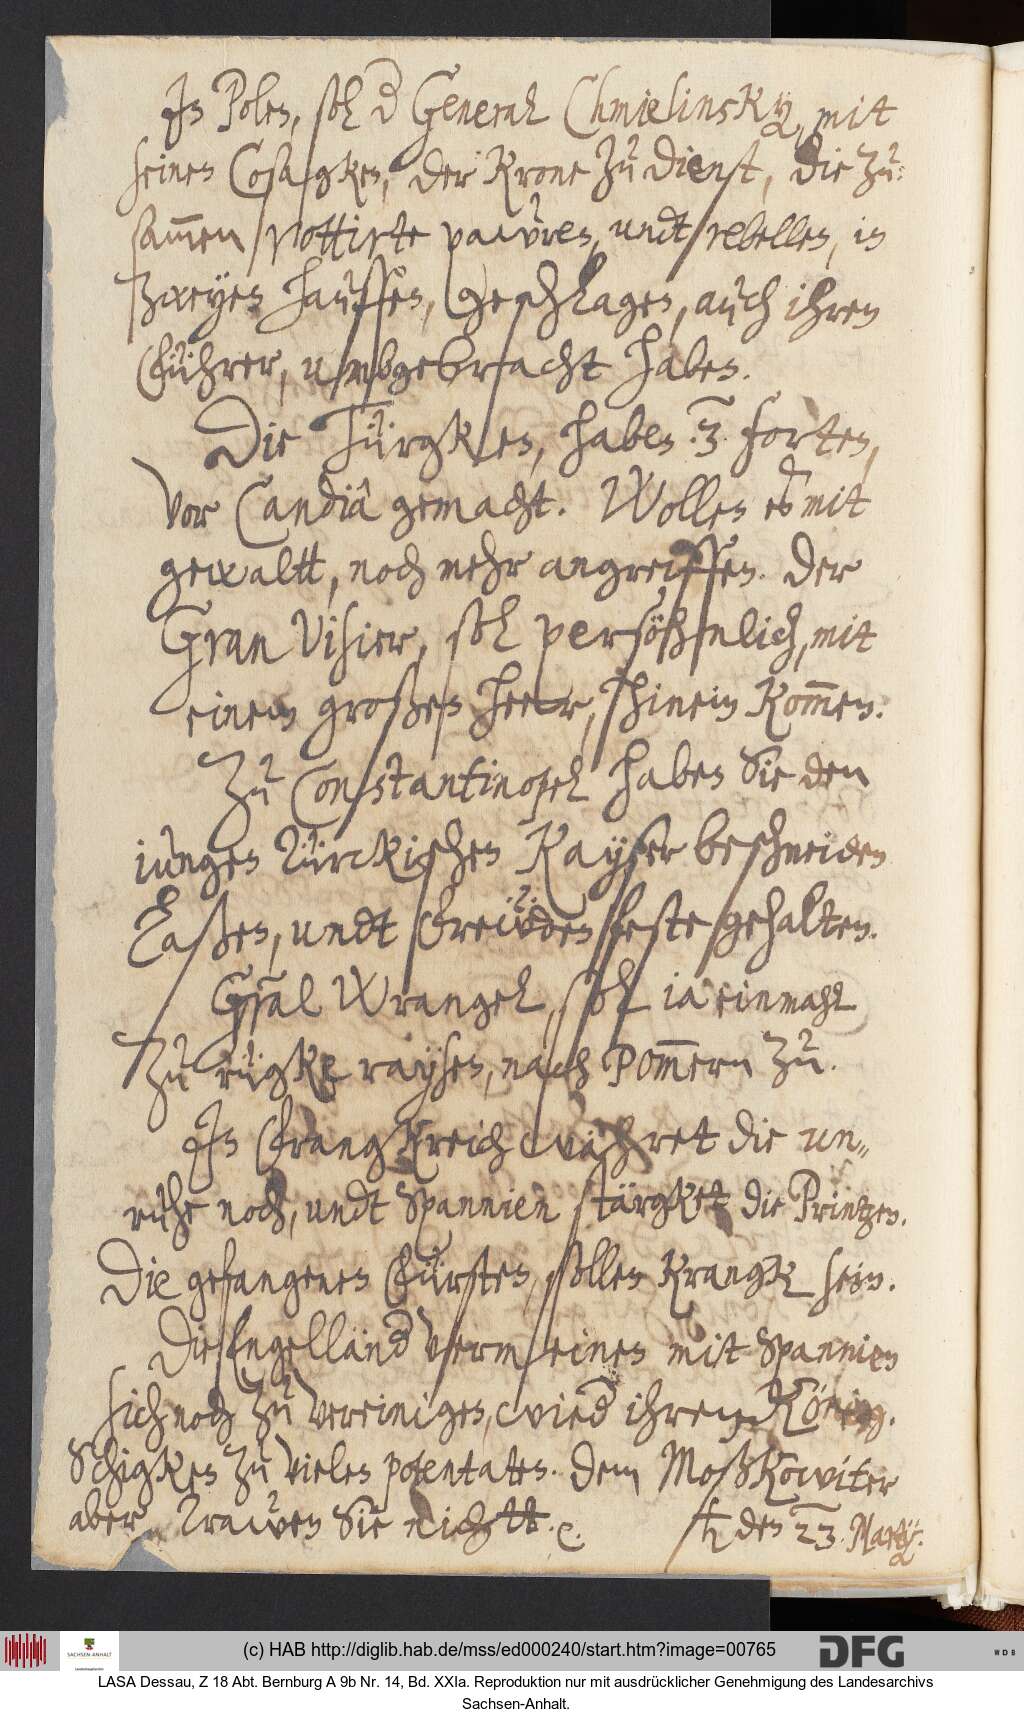 In Polen, soll d General Chmielinsky, mit
seinen Cosagken, der Krone zu dienst, die zu-
sam̄en rottirte pawren, undt rebellen, in
zweyen hauffen, geschlagen, auch ihren
Führer, umbgebracht haben.
Die Türgken, haben .3. forten,
vor Candia gemacht. Wollen es mit
gewaltt, noch mehr angreiffen. Der
Gran Visier, soll persöhnlich, mit
einem großen heer, hinein kom̄en.
Zu Constantinopel haben Sie den
iungen Türckischen Kayser beschneiden
laßen, undt frewden feste gehalten.
Gral Wrangel, soll ia einmahl
zu rügke raysen, nach Pom̄ern zu.
In Frangkreich währet die un„
ruhe noch, undt Spannien stärgket die Printzen.
Die gefangenen Fürsten, sollen krangk sein.
Die Engelländ vermeinen mit Spannien
sich noch zu vereinigen, wied ihren König.
Schigken zu vielen potentaten. dem Moßkowiter
aber trawen Sie nichtt. &c.
♄ den 23. Martij.
(c) HAB http://diglib.hab.de/mss/ed000240/start.htm?image=00765
SACHSEN-ANHALT
DFG
WDB
LASA Dessau, Z 18 Abt. Bernburg A 9b Nr. 14, Bd. XXIa. Reproduktion nur mit ausdrücklicher Genehmigung des Landesarchivs
Sachsen-Anhalt.